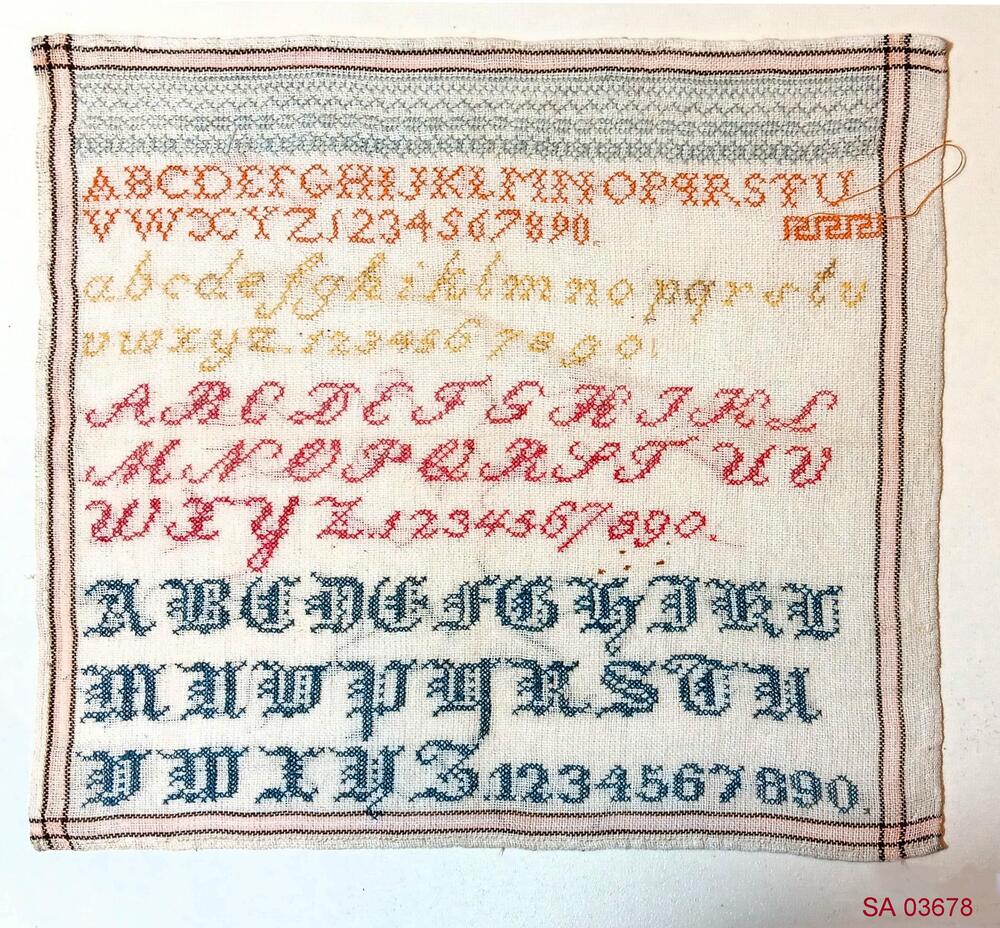 ABCDEFGHIJKLMNOPQRSTU
VWXYZ1234567890
abcdefghiklmnopqrstu
vwxyz.1234567890.
ABCDEFGHIKL
MNOPQRSTUV
WXYZ.1234567890.
ABCDEFGHIKL
MNOPQRSTU
VWXYZ1234567890.
SA 03678